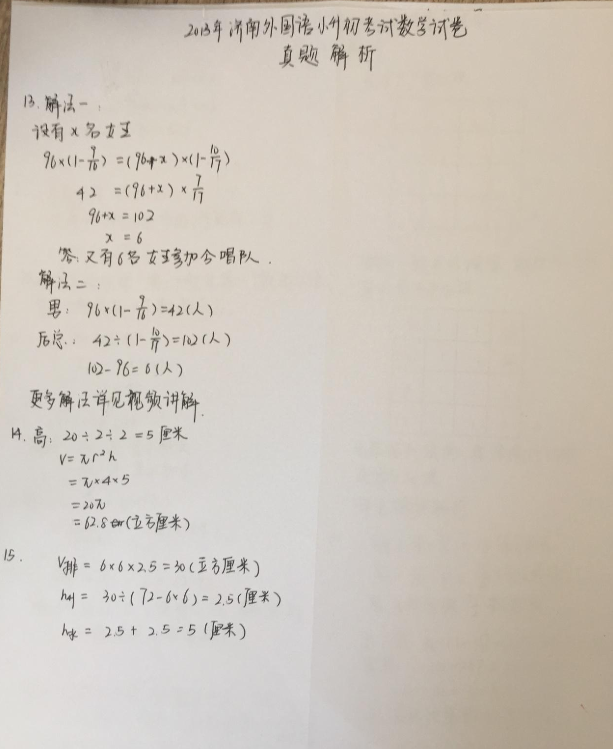 2013年济南外国语小升初考试数学试卷
真题解析
13. 解法一:
设有x名女生
96×(1-9/16)=(96+x)×(1-10/17)
42=(96+x)×7/17
96+x=102
x=6
答:又有6名女生参加合唱队.
解法二:
男: 96×(1-9/16)=42(人)
后总: 42÷(1-10/17)=102(人)
102-96=6(人)
更多解法详见视频讲解.
14. 高: 20÷2÷2=5厘米
V=πr²h
=π×4×5
=20π
=62.8(立方厘米)
15. V排=6×6×2.5=30(立方厘米)
h升=30÷(72-6×6)=2.5(厘米)
h水=2.5+2.5=5(厘米)